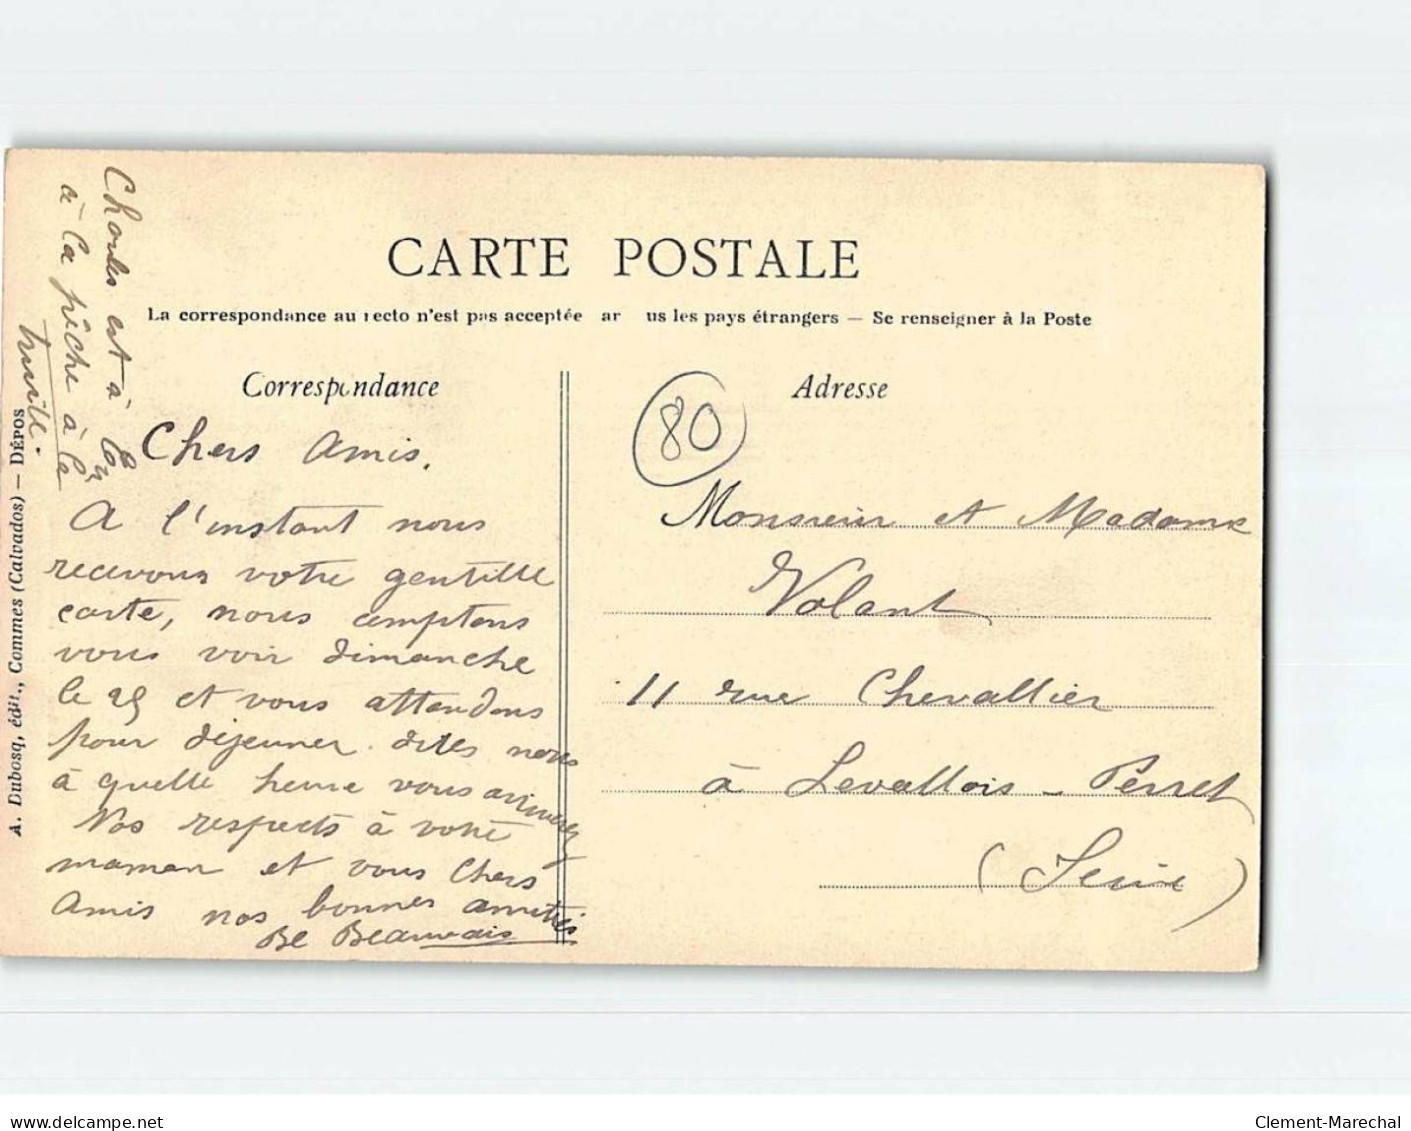 CARTE POSTALE
La correspondance au recto n'est pas acceptée ar us les pays étrangers — Se renseigner à la Poste
Correspondance
Chers Amis.
A l'instant nous
recevons votre gentille
carte, nous comptons
vous voir dimanche
le 25 et vous attendons
pour déjeuner. dites nous
à quelle heure vous arriverez
Nos respects à votre
maman et vous Chers
Amis nos bonnes amitiés
Be Beauvais
Charles est à
à la pêche à la
truite.
A. Dubosq, édit., Commes (Calvados) — DÉPOS
Adresse
80
Monsieur et Madame
Volant
11 rue Chevallier
à Levallois-Perret
(Seine)
delcampe.net
Clement-Marechal